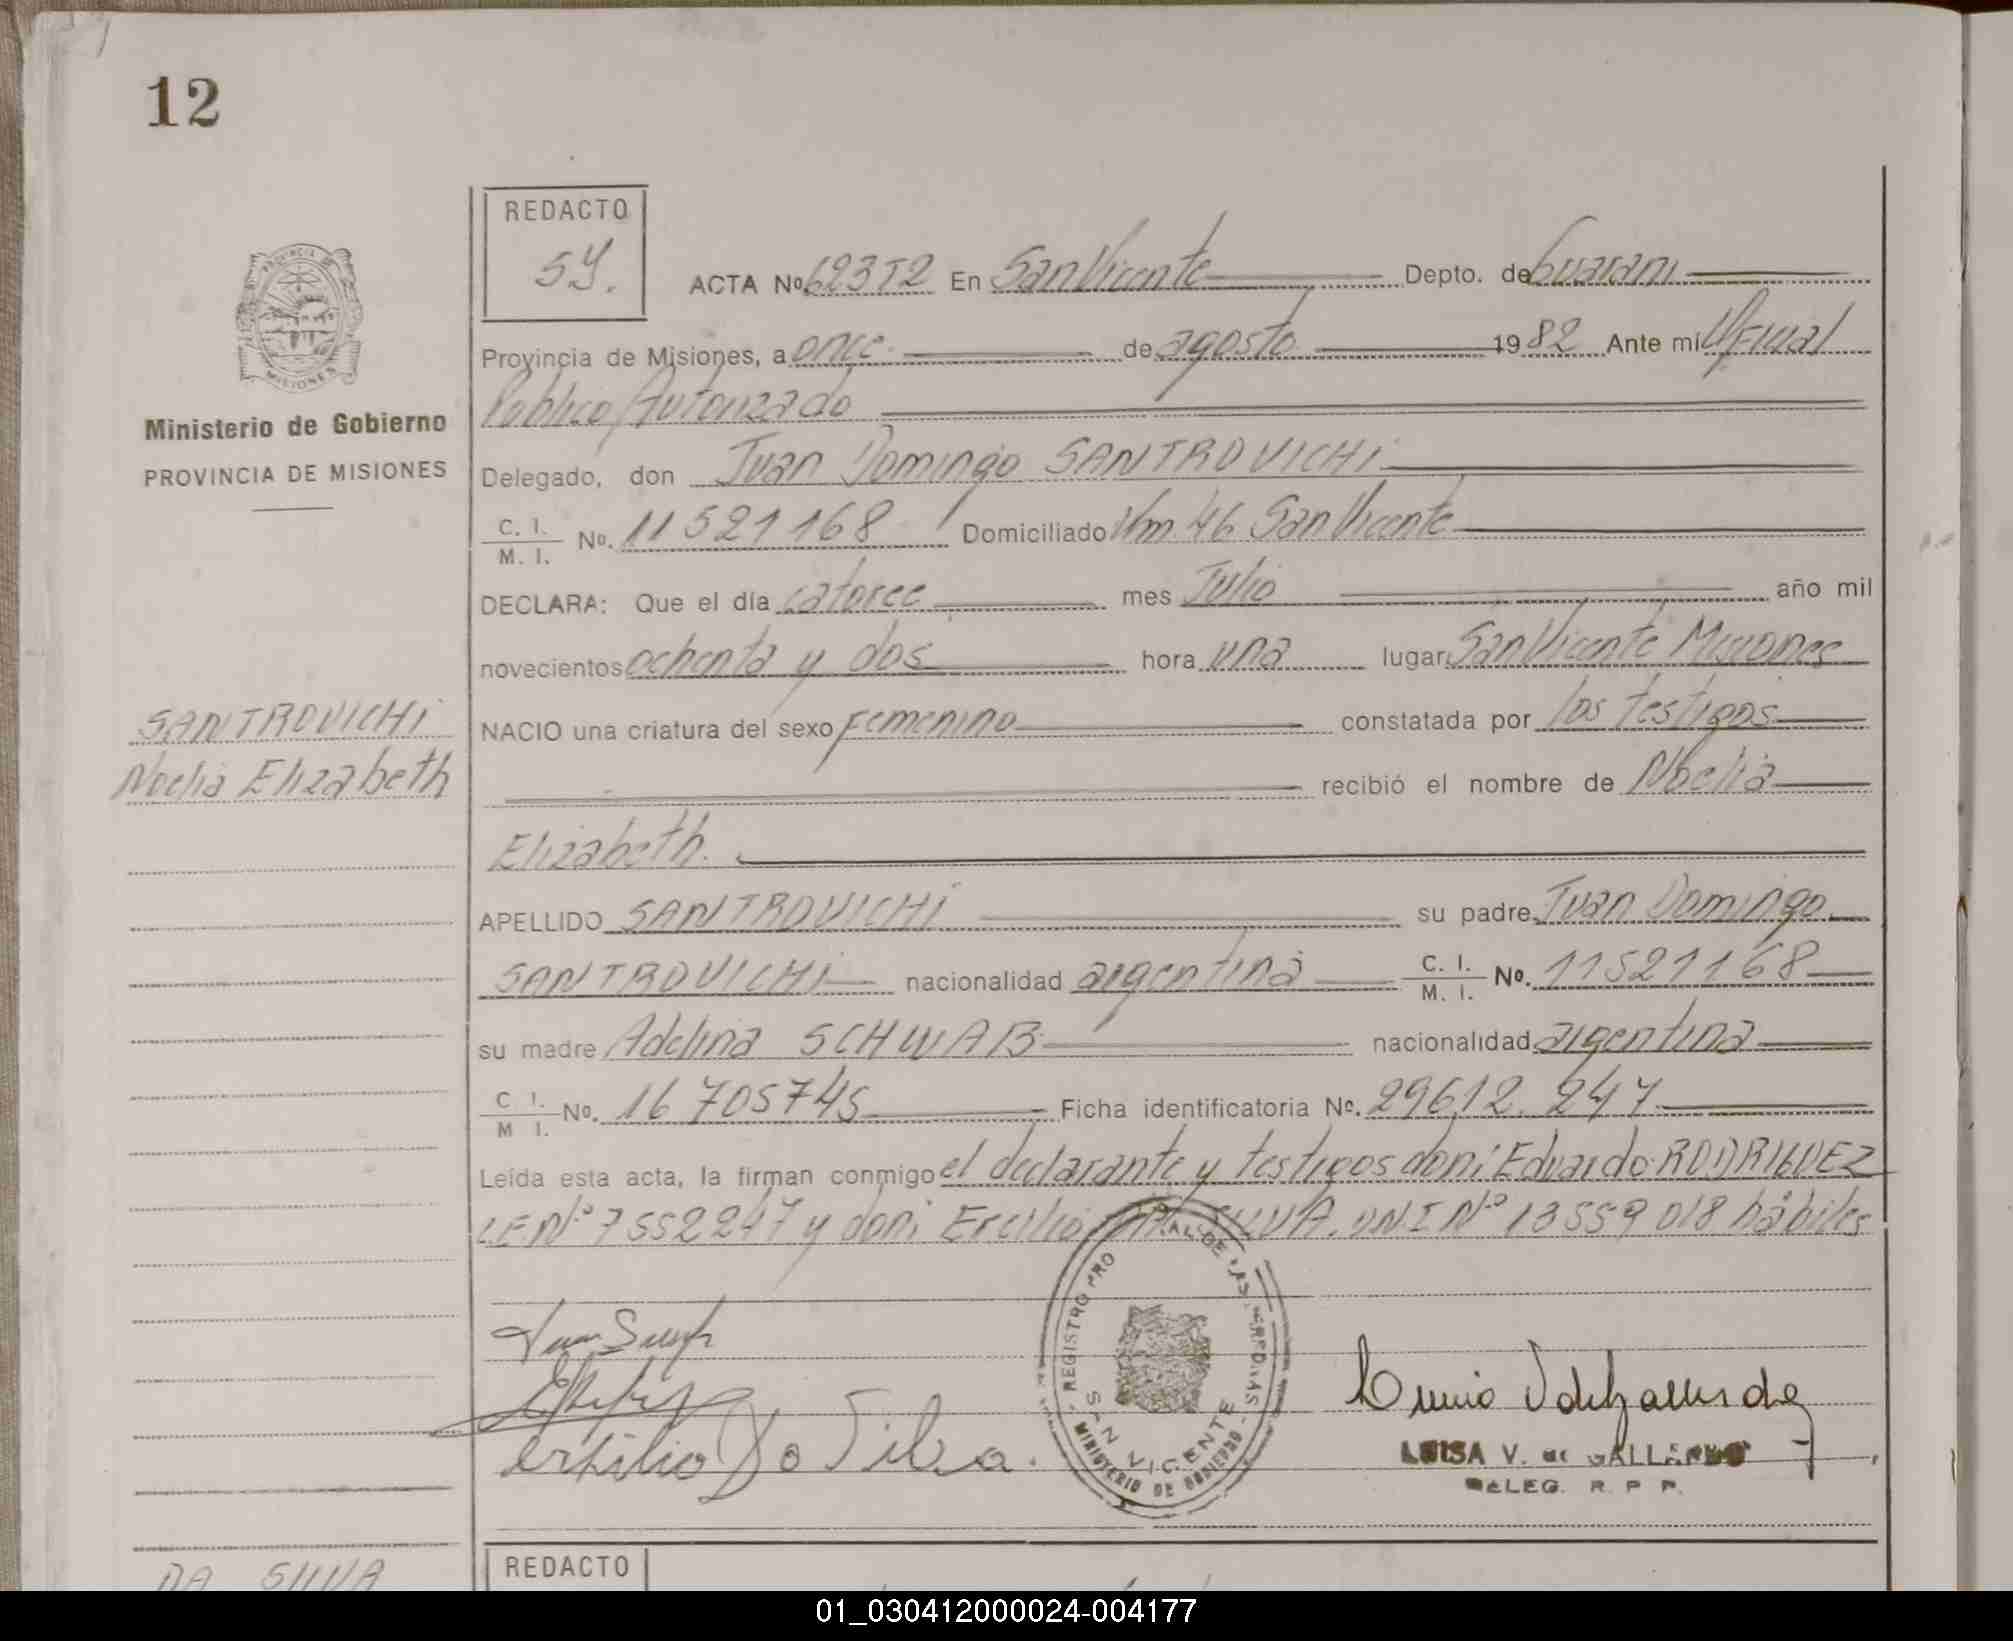 12
REDACTO
SY.
ACTA Nº 62372 En San Vicente Depto. de Guarani
Provincia de Misiones, a once de agosto 1982 Ante mi Oficial
Publico Autorizado
Delegado, don Juan Domingo SANTROVICHi
C. I. / M. I. Nº. 11521168 Domiciliado Km 46 San Vicente
DECLARA: Que el día catorce mes Julio año mil
novecientos ochenta y dos hora una lugar San Vicente Misiones
NACIO una criatura del sexo Femenino constatada por los testigos
recibió el nombre de Noelia
Elizabeth.
APELLIDO SANTROVICHi su padre Juan Domingo
SANTROVICHi nacionalidad argentina C. I. / M. I. Nº. 11521168
su madre Adelina SCHWAB nacionalidad argentina
C I. / M I. Nº. 16705745 Ficha identificatoria Nº. 29612.247
Leída esta acta, la firman conmigo el declarante y testigos don: Eduardo RODRIGUEZ
L.E Nº 7552247 y don: Ercilio DA SILVA. DNI Nº 13559018 hábiles
Ministerio de Gobierno
PROVINCIA DE MISIONES
MISIONES
SANTROVICHi
Noelia Elizabeth
ersilio Da Silva.
REGISTRO PRO AL DE LAS PERSONAS
SAN VICENTE
MINISTERIO DE GOBIERNO
LUISA V. de GALLARDO
DELEG. R. P. P.
DA SILVA
REDACTO
01_030412000024-004177